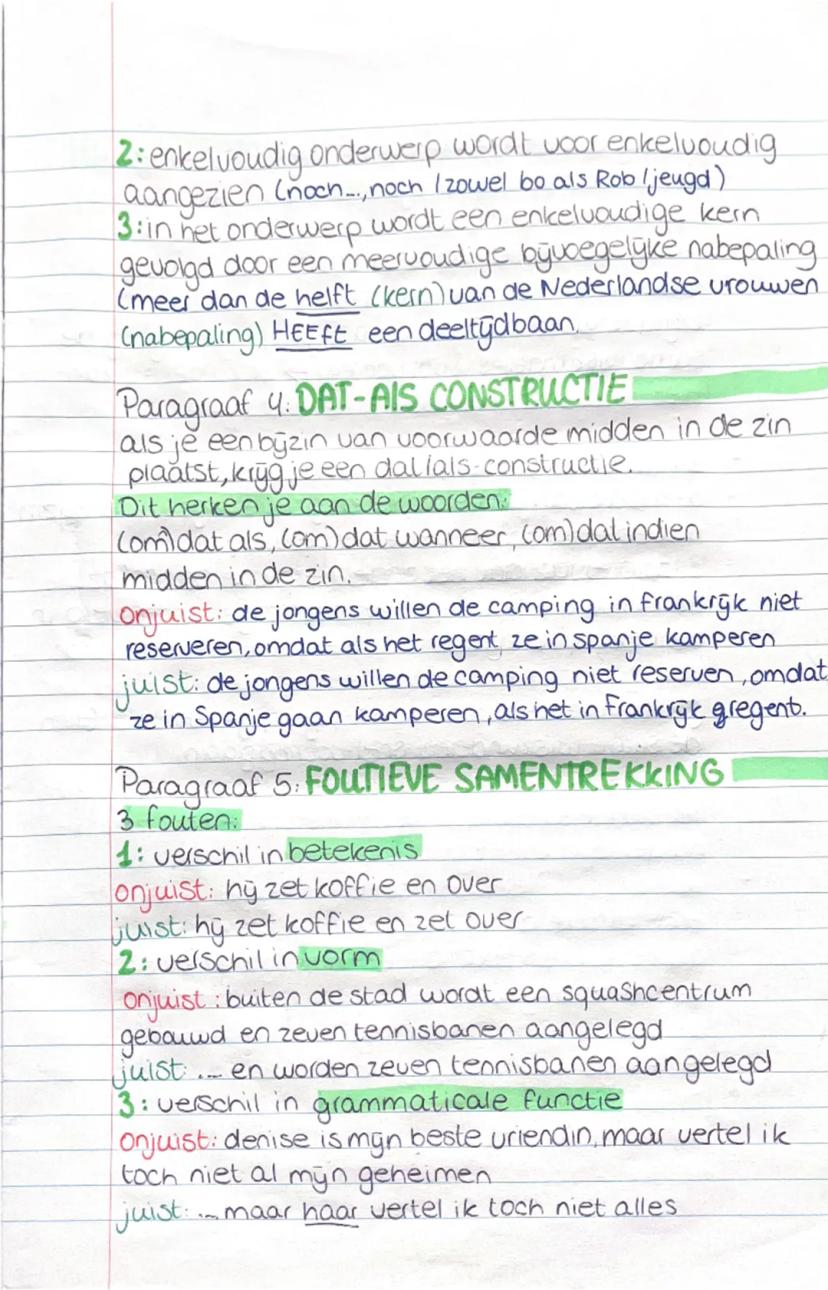 2: enkelvoudig onderwerp wordt voor enkelvoudig
aangezien (noch..., noch / zowel bo als Rob / jeugd)
3: in het onderwerp wordt een enkelvoudige kern
gevolgd door een meervoudige bijvoegelijke nabepaling
(meer dan de helft (kern) van de Nederlandse vrouwen
(nabepaling) HEEft een deeltijdbaan.
Paragraaf 4: DAT-AlS CONSTRUCTIE
als je een bijzin van voorwaarde midden in de zin
plaatst, krijg je een dat/als-constructie.
Dit herken je aan de woorden:
(om)dat als, (om)dat wanneer, (om)dat indien
midden in de zin.
onjuist: de jongens willen de camping in frankrijk niet
reserveren, omdat als het regent ze in spanje kamperen
juist: de jongens willen de camping niet reserven, omdat
ze in Spanje gaan kamperen, als het in Frankrijk gregent.
Paragraaf 5: FOUTIEVE SAMENTREKKING
3 fouten:
1: verschil in betekenis
onjuist: hij zet koffie en over
juist: hij zet koffie en zet over
2: verschil in vorm
onjuist: buiten de stad wordt een squashcentrum
gebouwd en zeven tennisbanen aangelegd
juist: ... en worden zeven tennisbanen aangelegd
3: verschil in grammaticale functie
onjuist: denise is mijn beste vriendin, maar vertel ik
toch niet al mijn geheimen
juist: ... maar haar vertel ik toch niet alles